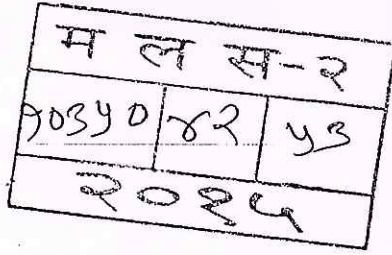 म ल स-२
१०३५० ४२ ५३
२०२५